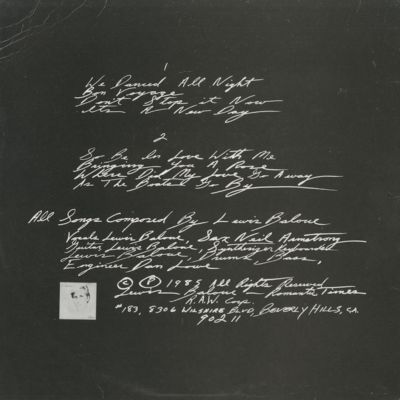 1
We Danced All Night
Bon Voyage
Don't Stop it Now
Its A New Day
2
So Be In Love With Me
Bringing You A Rose
Where Did My Love Go Away
As The Boats Go By
All Songs Composed By Lewis Baloue
Vocals Lewis Baloue, Sax Neil Armstrong
Guitar Lewis Baloue, Synthesizer Keyboards
Lewis Baloue, Drums, Bass,
Engineer Dan Lowe
© ℗ 1985 All Rights Reserved
Lewis Baloue - Romantic Times
R.A.W. Corp.
#183, 8306 WILSHIRE BLVD, BEVERLY HILLS, CA.
90211